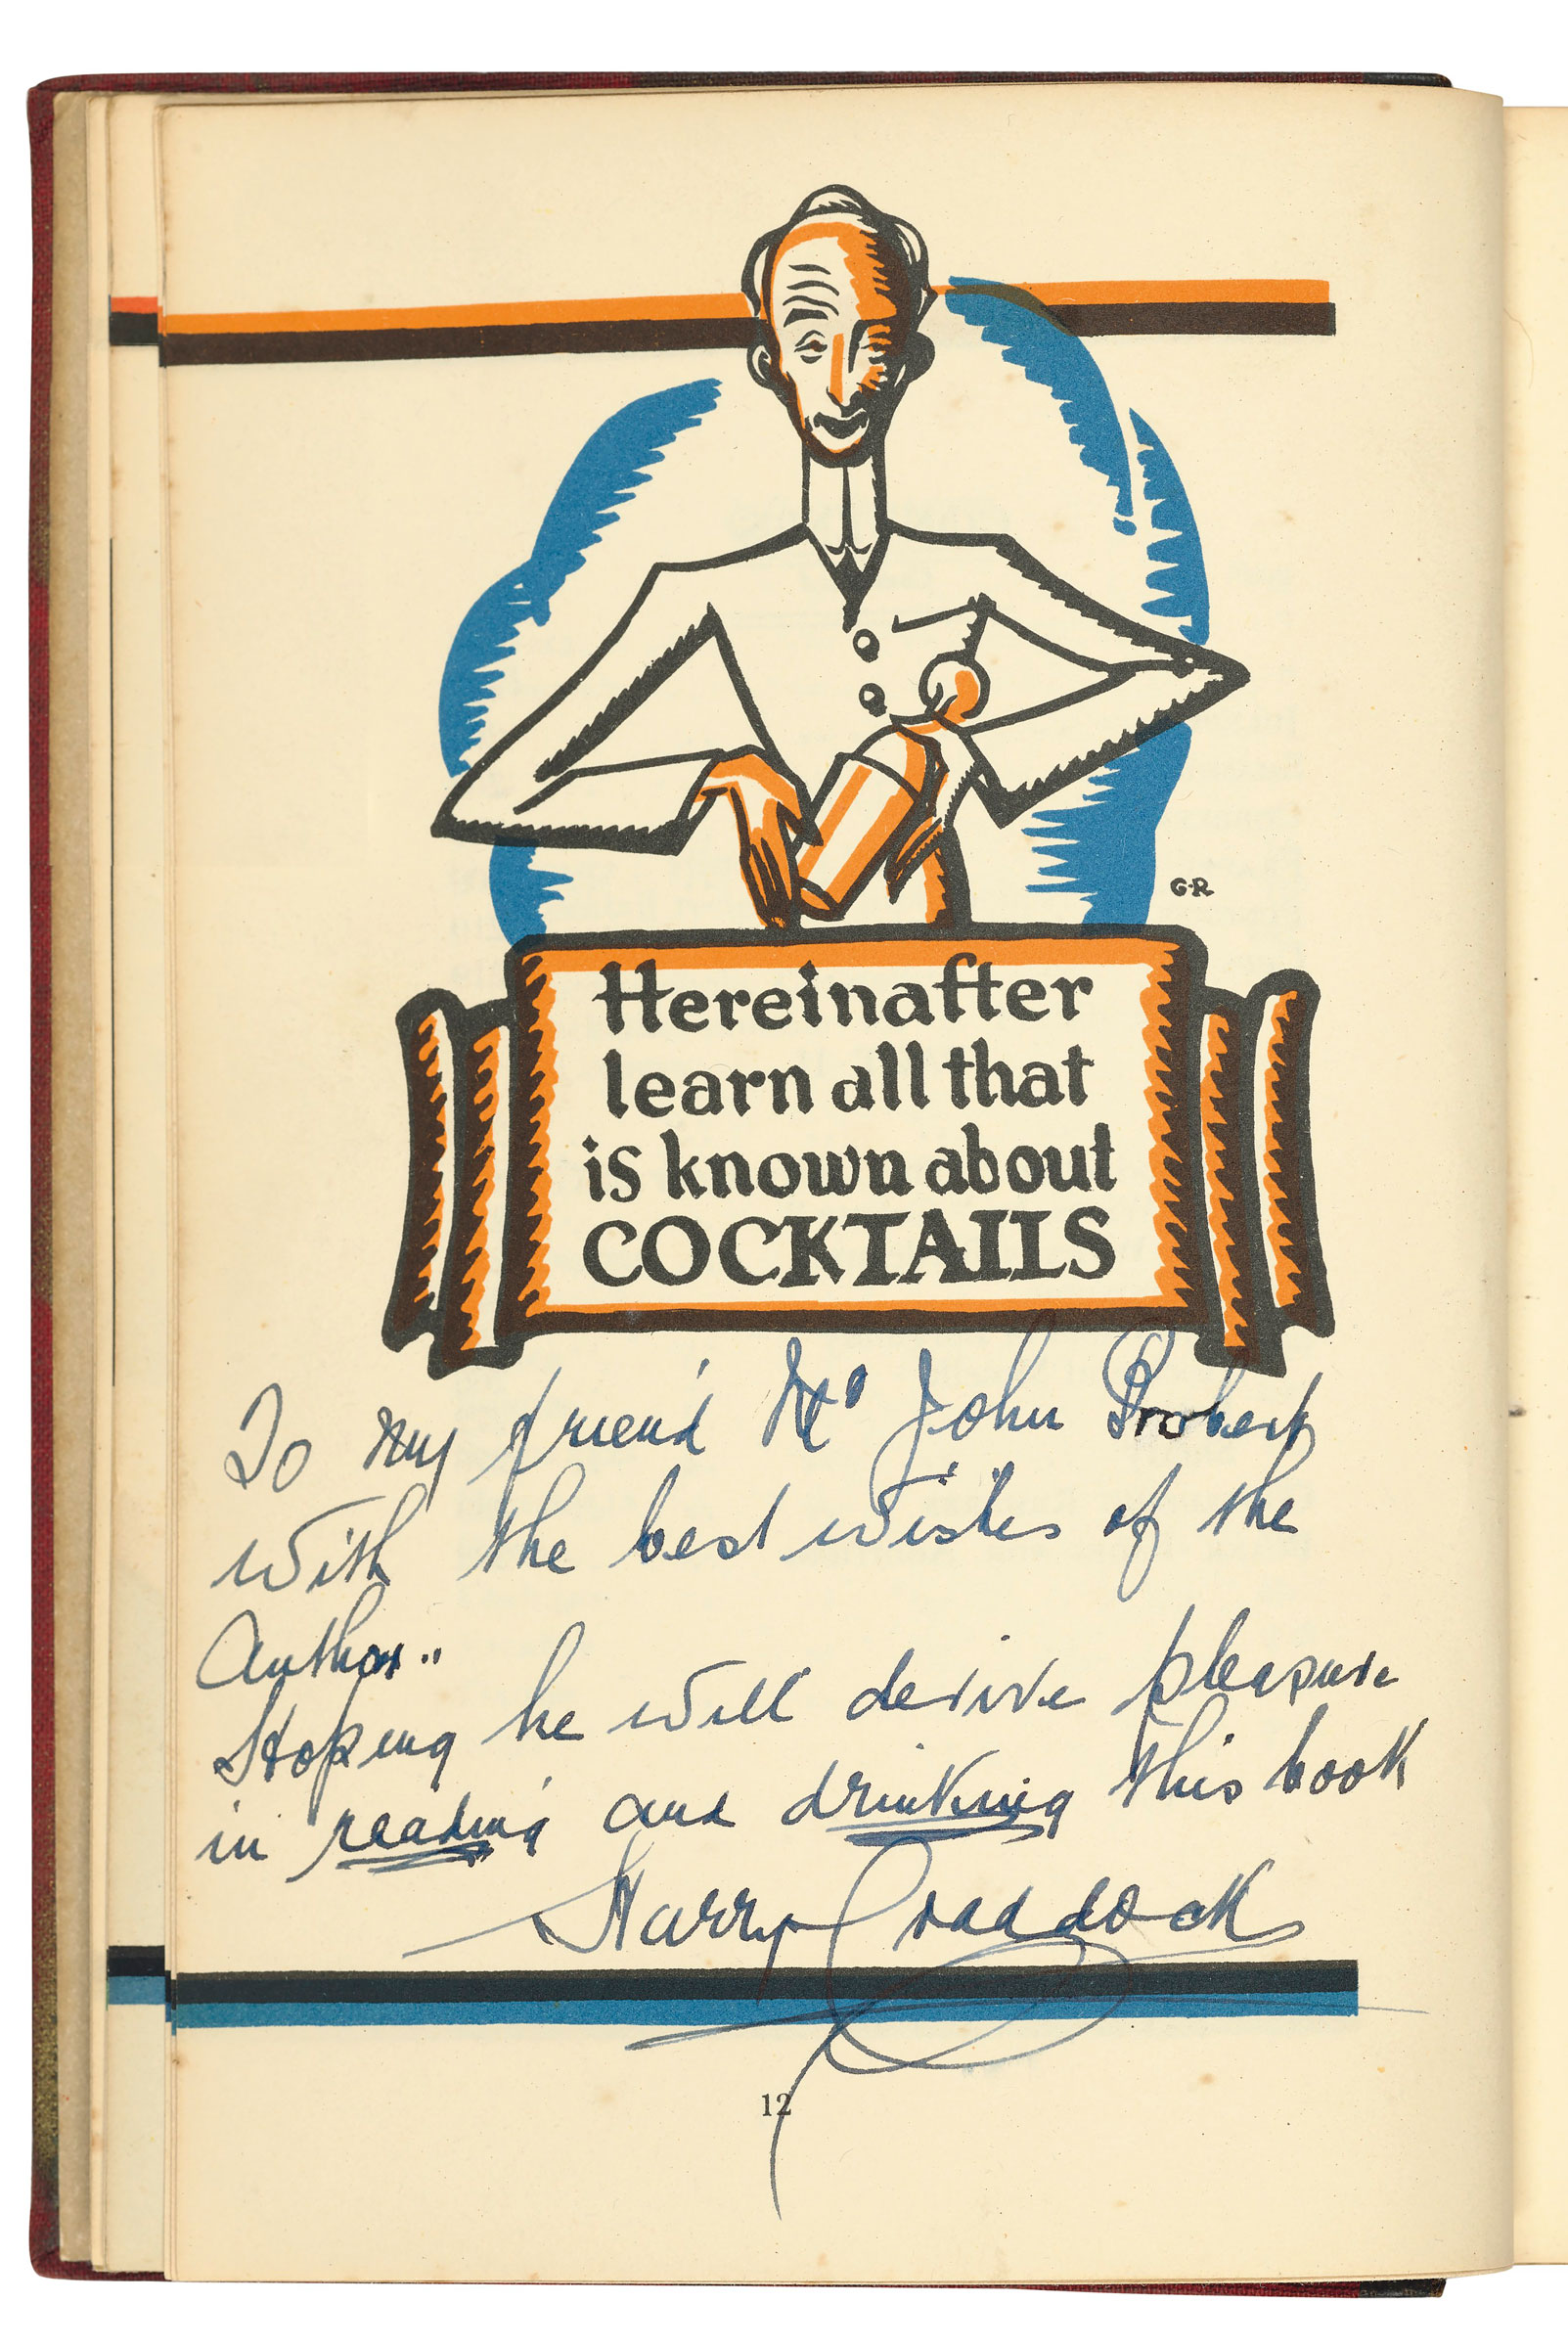 G·R
Hereinafter
learn all that
is known about
COCKTAILS
To my friend Mr John Probert
with the best wishes of the
Author..
Hoping he will derive pleasure
in reading and drinking this book
Harry Craddock
12